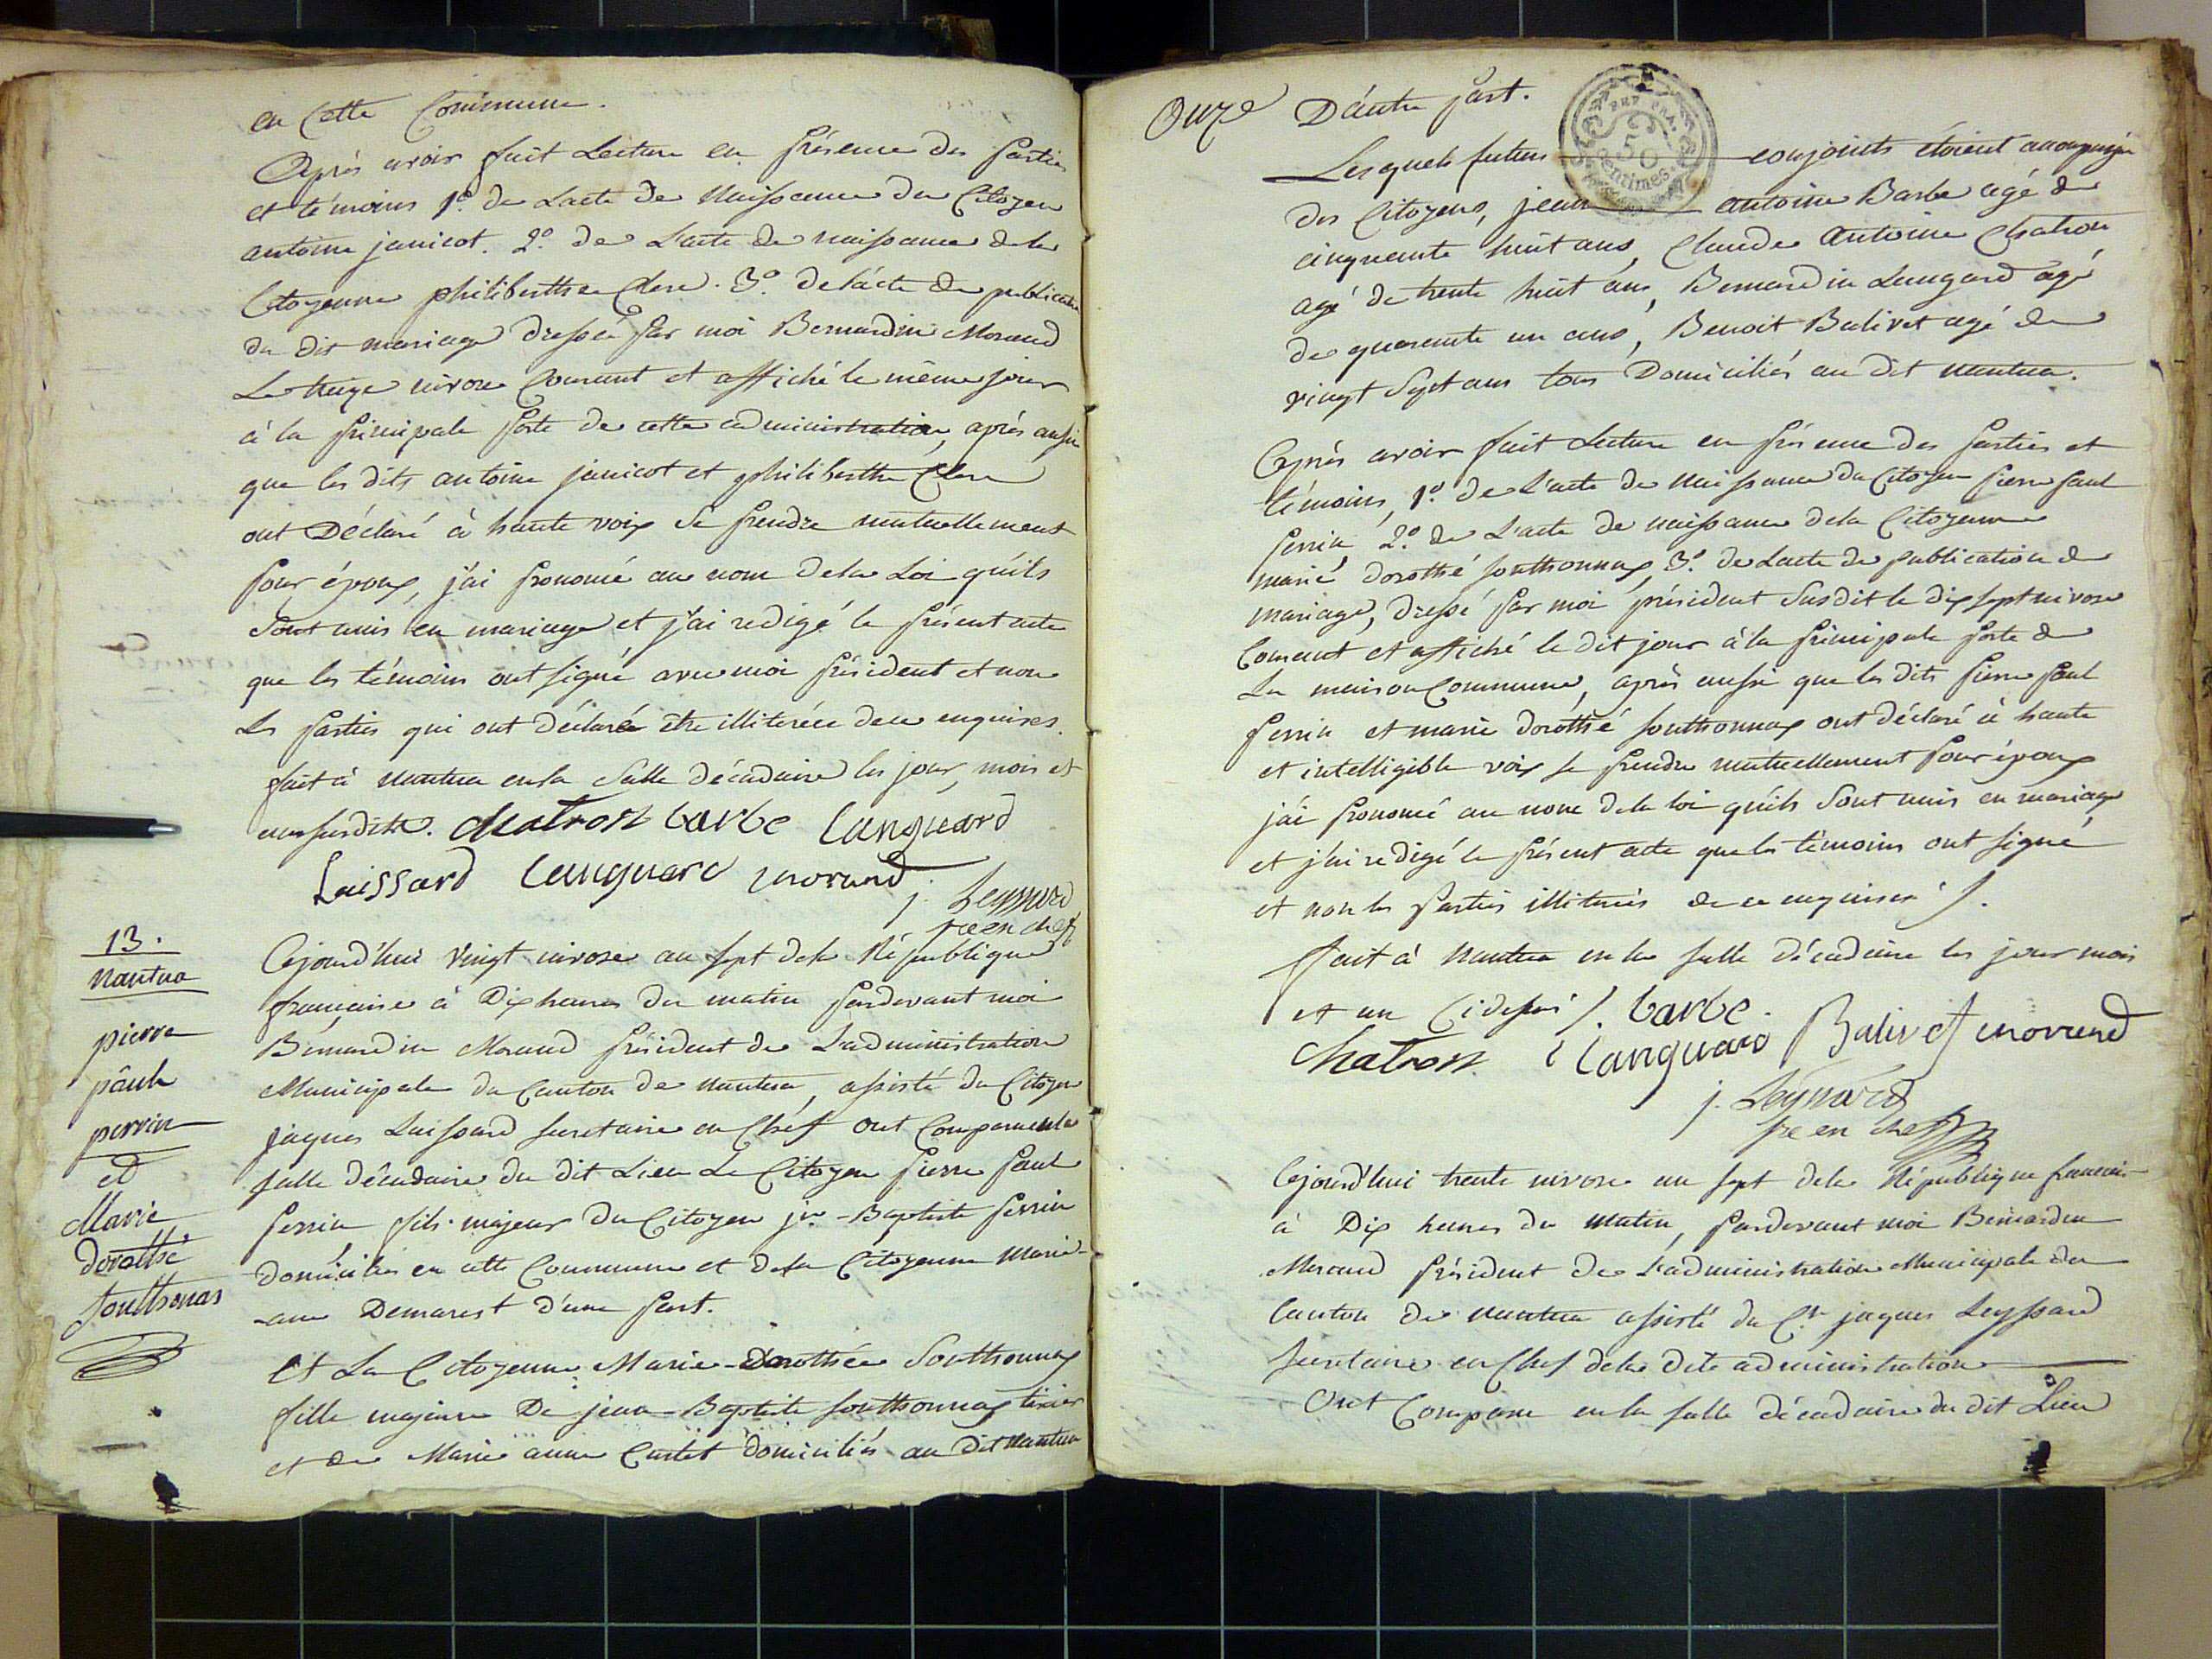 en Cette Commune.
Après avoir fait Lecture en présence des parties
et témoins 1º. de Lacte de Naissance du Citoyen
antoine janicot. 2º. de L'acte de naissance de la
Citoyenne philiberthe Clere. 3º. de l'acte de publication
du dit mariage dressé par moi Bernardin Morand
Le treize nivose Courant et affiché le même jour
à la principale porte de cette administration, après aussi
que les dits antoine janicot et philiberthe Clere
ont Déclaré à haute voix se prendre mutuellement
pour époux, j'ai prononcé au nom de la Loi qu'ils
sont unis en mariage et j'ai redigé le présent acte
que les témoins ont signé avec moi président et non
Les parties qui ont déclaré être illiterées de ce enquises.
fait à nantua en la Salle décadaire les jour, mois et
an susdits. Chatron barbe Languard
Laissard Languard morand
j. Leyssard
sre en chef
13.
Nantua
pierre
paule
perrin
et
Marie
dorothé
Southonas
Cejourd'hui Vingt nivose an sept de la République
française à Dix heures du matin pardevant moi
Bernardin Morand président de L'administration
Municipale du Canton de nantua, assisté du Citoyen
jaques Laissard secretaire en Chef ont Comparu en la
salle décadaire du dit Lieu Le Citoyen pierre paul
perrin fils majeur du Citoyen jn-Baptiste perrin
domiciliés en cette Commune et de la Citoyenne Marie-
-anne Demarest d'une part.
Et La Citoyenne Marie-Dorothée Southonnax
fille majeure De jean-Baptiste Southonnax tixier
et de Marie anne Curtet domiciliés au dit Nantua
Onze D'autre part.
50 Centimes
Lesquels futurs conjoints étoient accompagnés
des Citoyens, jean antoine Barbe agé de
cinquante huit ans, Claude Antoine Chatron
agé de trente huit ans, Bernardin Languard agé
de quarante un ans, Benoit Balivet agé de
vingt Sept ans tous Domiciliés au dit nantua.
Après avoir fait Lecture en présence des parties et
témoins, 1º. de L'acte de Naissance du Citoyen pierre paul
perrin 2º. de L'acte de naissance de la Citoyenne
marie dorothé Southonnax, 3º. de Lacte de publication de
mariage, dressé par moi président Susdit le dix sept nivose
Courant et affiché le dit jour à la principale porte de
La maison Commune, après aussi que les dits pierre paul
perrin et marie dorothé Southonnax ont déclaré à haute
et intelligible voix se prendre mutuellement pour époux
j'ai prononcé au nom de la loi qu'ils Sont unis en mariage
et j'ai redigé le présent acte que les témoins ont signé
et non les parties illiterées de ce enquises /.
fait à Nantua en la salle décadaire les jour mois
et an Cidessus /. barbe.
Chatron Languard Balivet morand
j. Leyssard
sre en chef
Cejourd'hui trente nivose an sept de la République française
à Dix heures du Matin, pardevant moi Bernardin
Morand président de L'administration Municipale du
Canton de nantua assisté du Cn jaques Leyssard
secretaire en Chef de la dite administration
Ont Comparu en la salle décadaire du dit Lieu